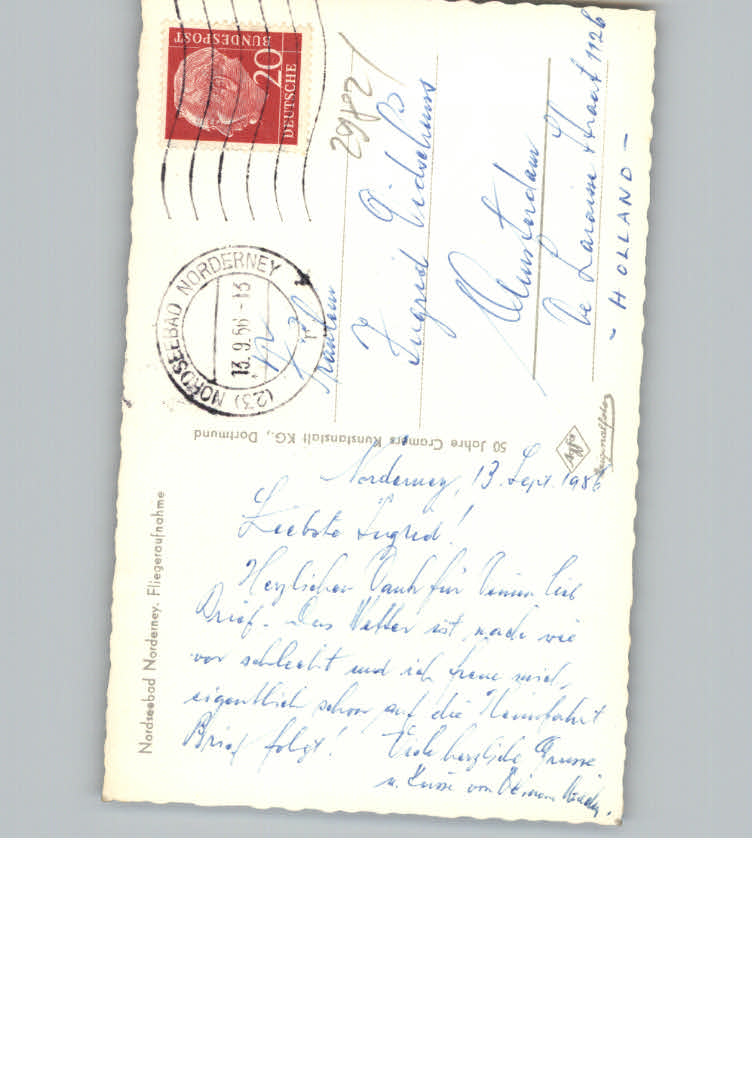 Norderney, 13. Sept. 1956
Liebste Ingrid!
Herzlichen Dank für Deinen lieb
Brief. Das Wetter ist nach wie
vor schlecht und ich freue mich
eigentlich schon auf die Heimfahrt
Brief folgt! Viele herzliche Grüsse
u. Küsse von Deinem
Nordseebad Norderney. Fliegeraufnahme
50 Jahre Cramers Kunstanstalt KG., Dortmund
Originalfoto
DEUTSCHE
BUNDESPOST
20
(23) NORDSEEBAD NORDERNEY
13.9.56-13
2982/
Fräulein
Ingrid
Amsterdam
De Lairesse straat 112b
- HOLLAND -